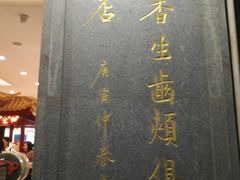 香生齒頰
店
庚寅仲春